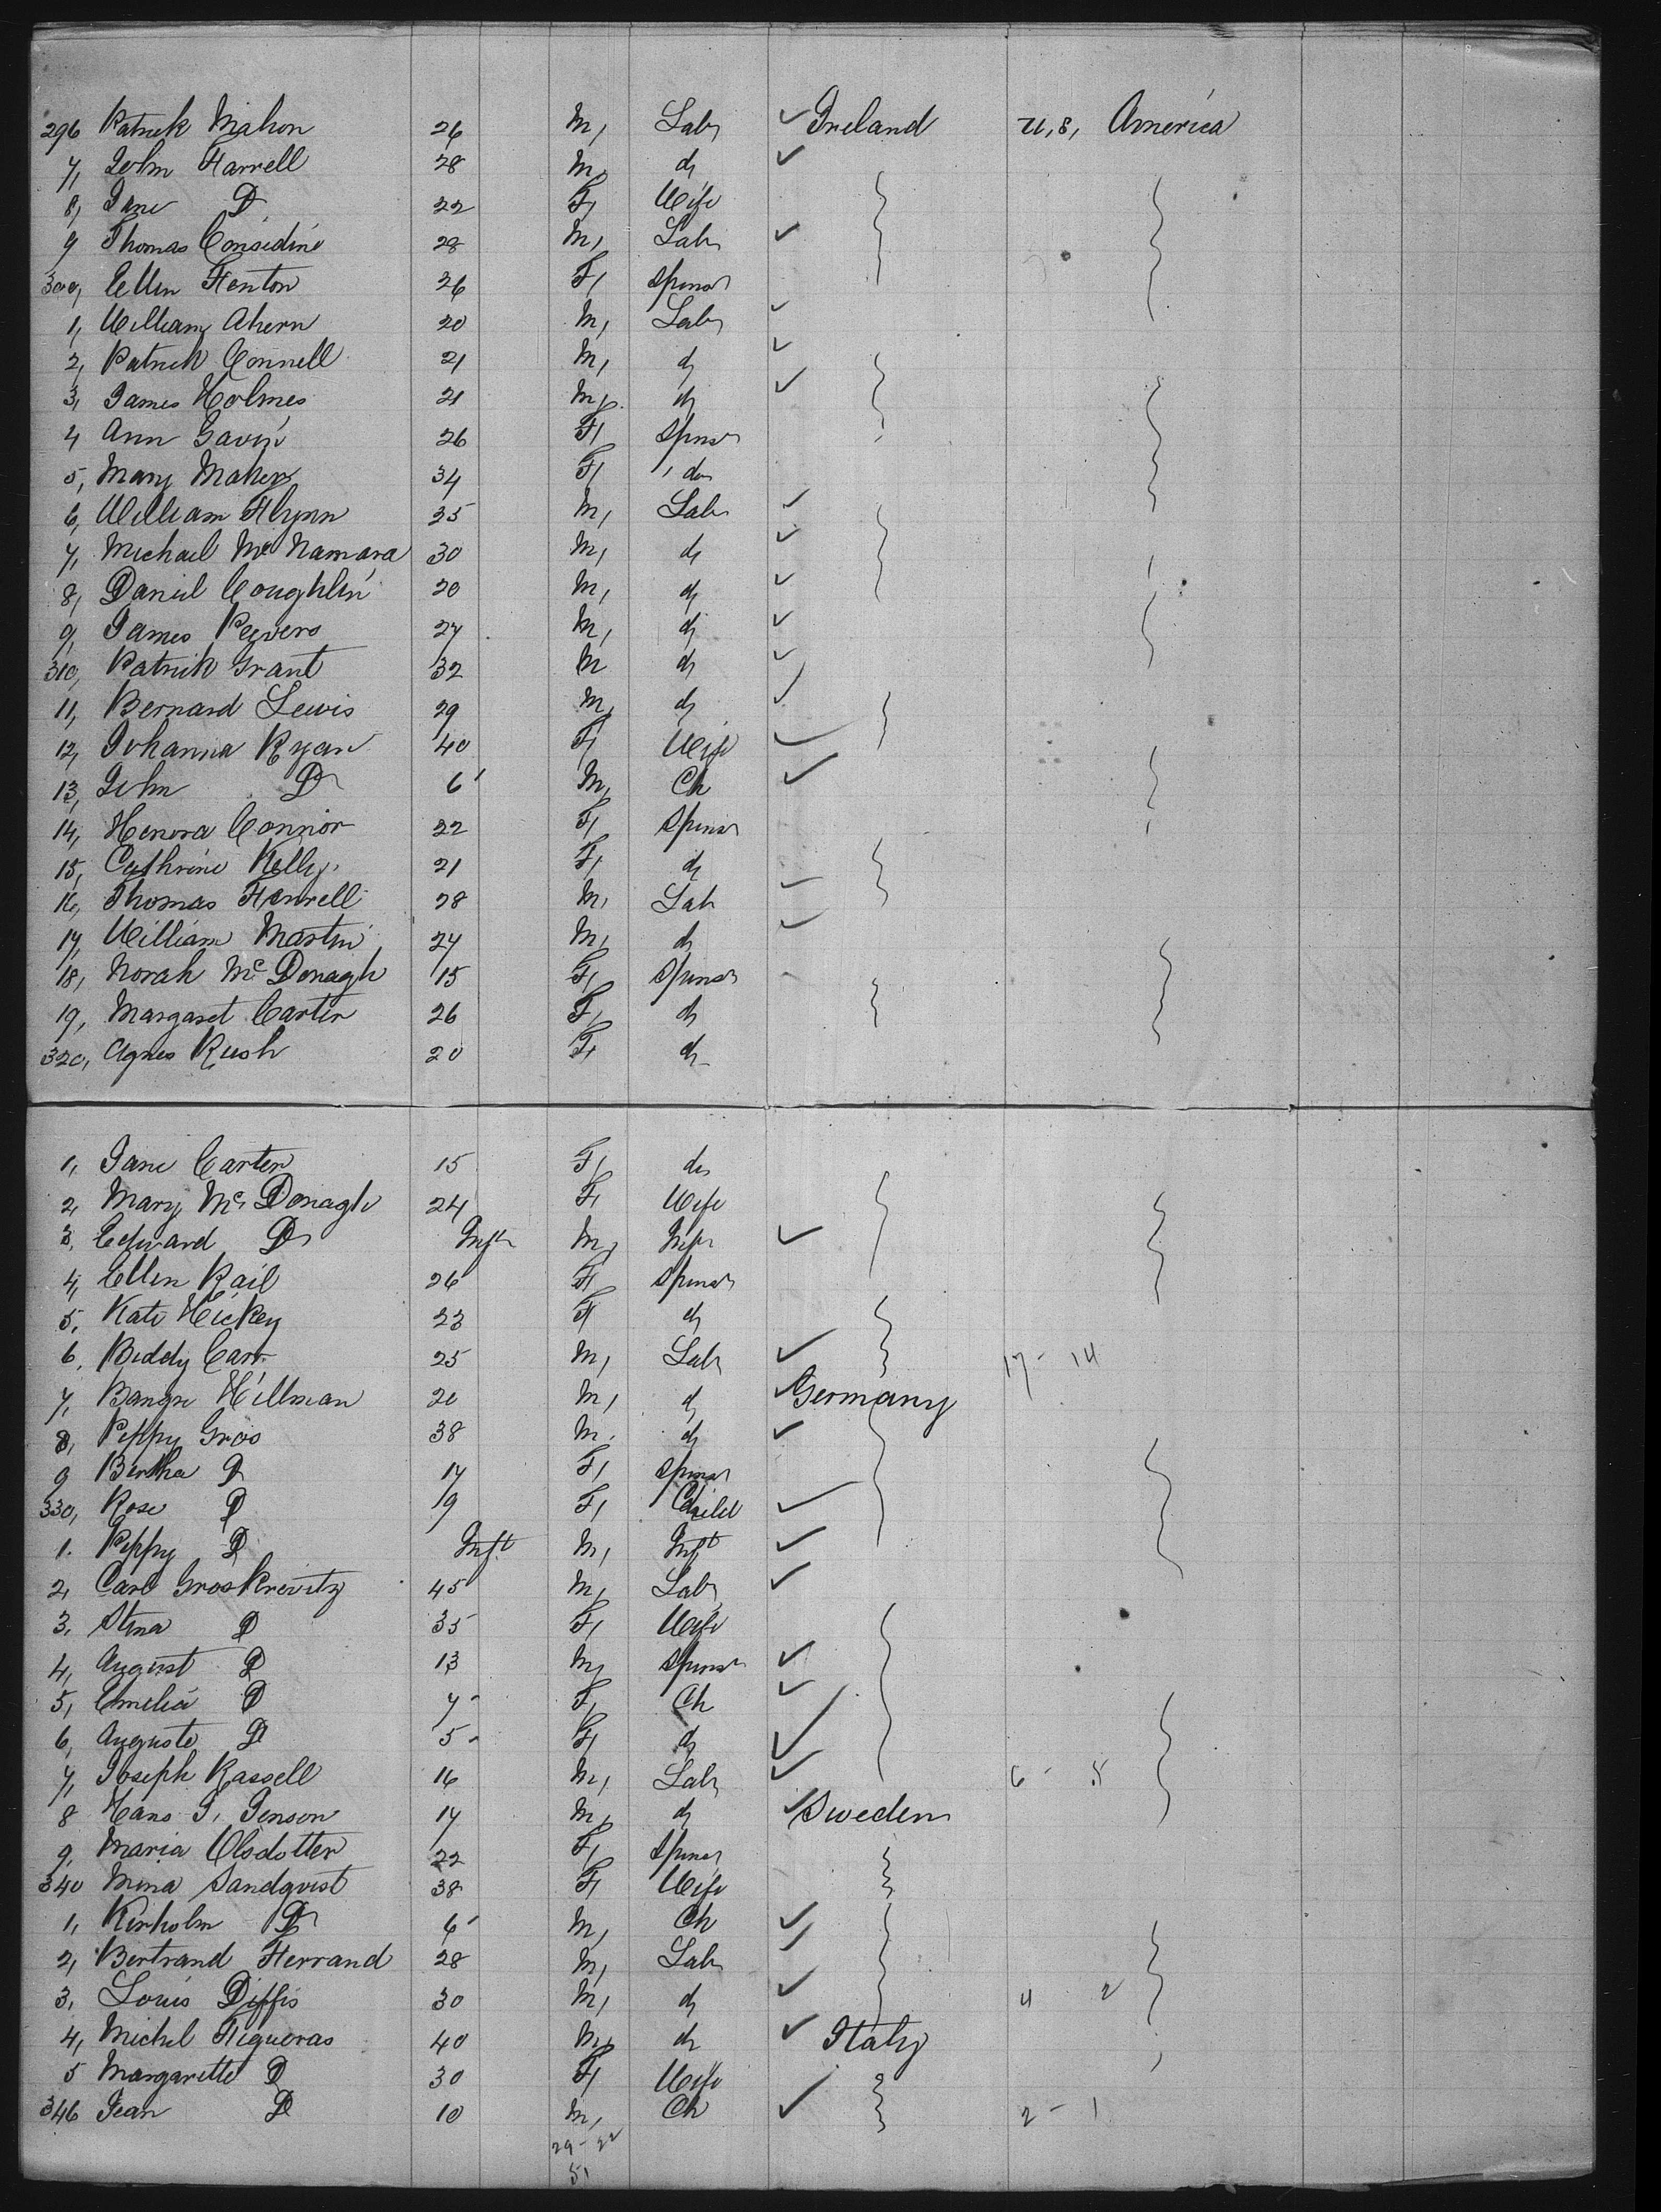 296 Patrick Mahon 26 M, Labr Ireland U,S, America
7, John Farrell 28 M, do
8, Jane Do 22 F, Wife
9 Thomas Considine 28 M, Labr
300, Ellen Fenton 26 F, Spinsr
1, William Ahern 20 M, Labr
2, Patrick Connell 21 M, do
3, James Holmes 21 M, do
4 Ann Gavin 26 F, Spinsr
5, Mary Maher 34 F, do
6, William Flynn 35 M, Labr
7, Michael McNamara 30 M, do
8, Daniel Coughlin 20 M, do
9, James 27 M, do
310, Patrick Grant 32 M do
11, Bernard Lewis 29 M, do
12, Johanna Ryan 40 F, Wife
13, John Do 6 M, Ch
14, Henora Connor 22 F, Spinsr
15, Cathrine Kelly 21 F, do
16, Thomas Farrell 28 M, Labr
17, William Martin 24 M, do
18, Norah McDonagh 15 F, Spinsr
19, Margaret Carter 26 F, do
320, Agnes Rush 20 F, do
1, Jane Carter 15 F, do
2, Mary McDonagh 24 F, Wife
3, Edward Do Inft M, Inft
4, Ellen Kail 26 F, Spinsr
5, Kate Hickey 23 F, do
6, Biddy Carr 25 M, Labr 17 - 14
7, Hillman 20 M, do Germany
8, Peppy Gros 38 M. do
9 Bertha Do 17 F, Spinsr
330, Rose Do 9 F, Child
1. Peppy Do Inft M, Inft
2, Carl Groskrevitz 45 M, Labr
3, Stina Do 35 F, Wife
4, August Do 13 M, Spinsr
5, Emelia Do 7 F, Ch
6, Auguste Do 5 F, do
7, Joseph Kassell 16 M, Labr 6 - 5
8 Hans J, Jenson 17 M, do Sweden
9, Maria Olsdotter 22 F, Spinsr
340 Mina Sandqvist 38 F, Wife
1, Kerholm Do 6 M, Ch
2, Bertrand Ferrand 28 M, Labr
3, Louis Diffis 30 M, do 4 2
4, Michel Figueras 40 M, do Italy
5 Margarette Do 30 F, Wife
346 Jean Do 10 M, Ch 2 - 1
29 - 22
51